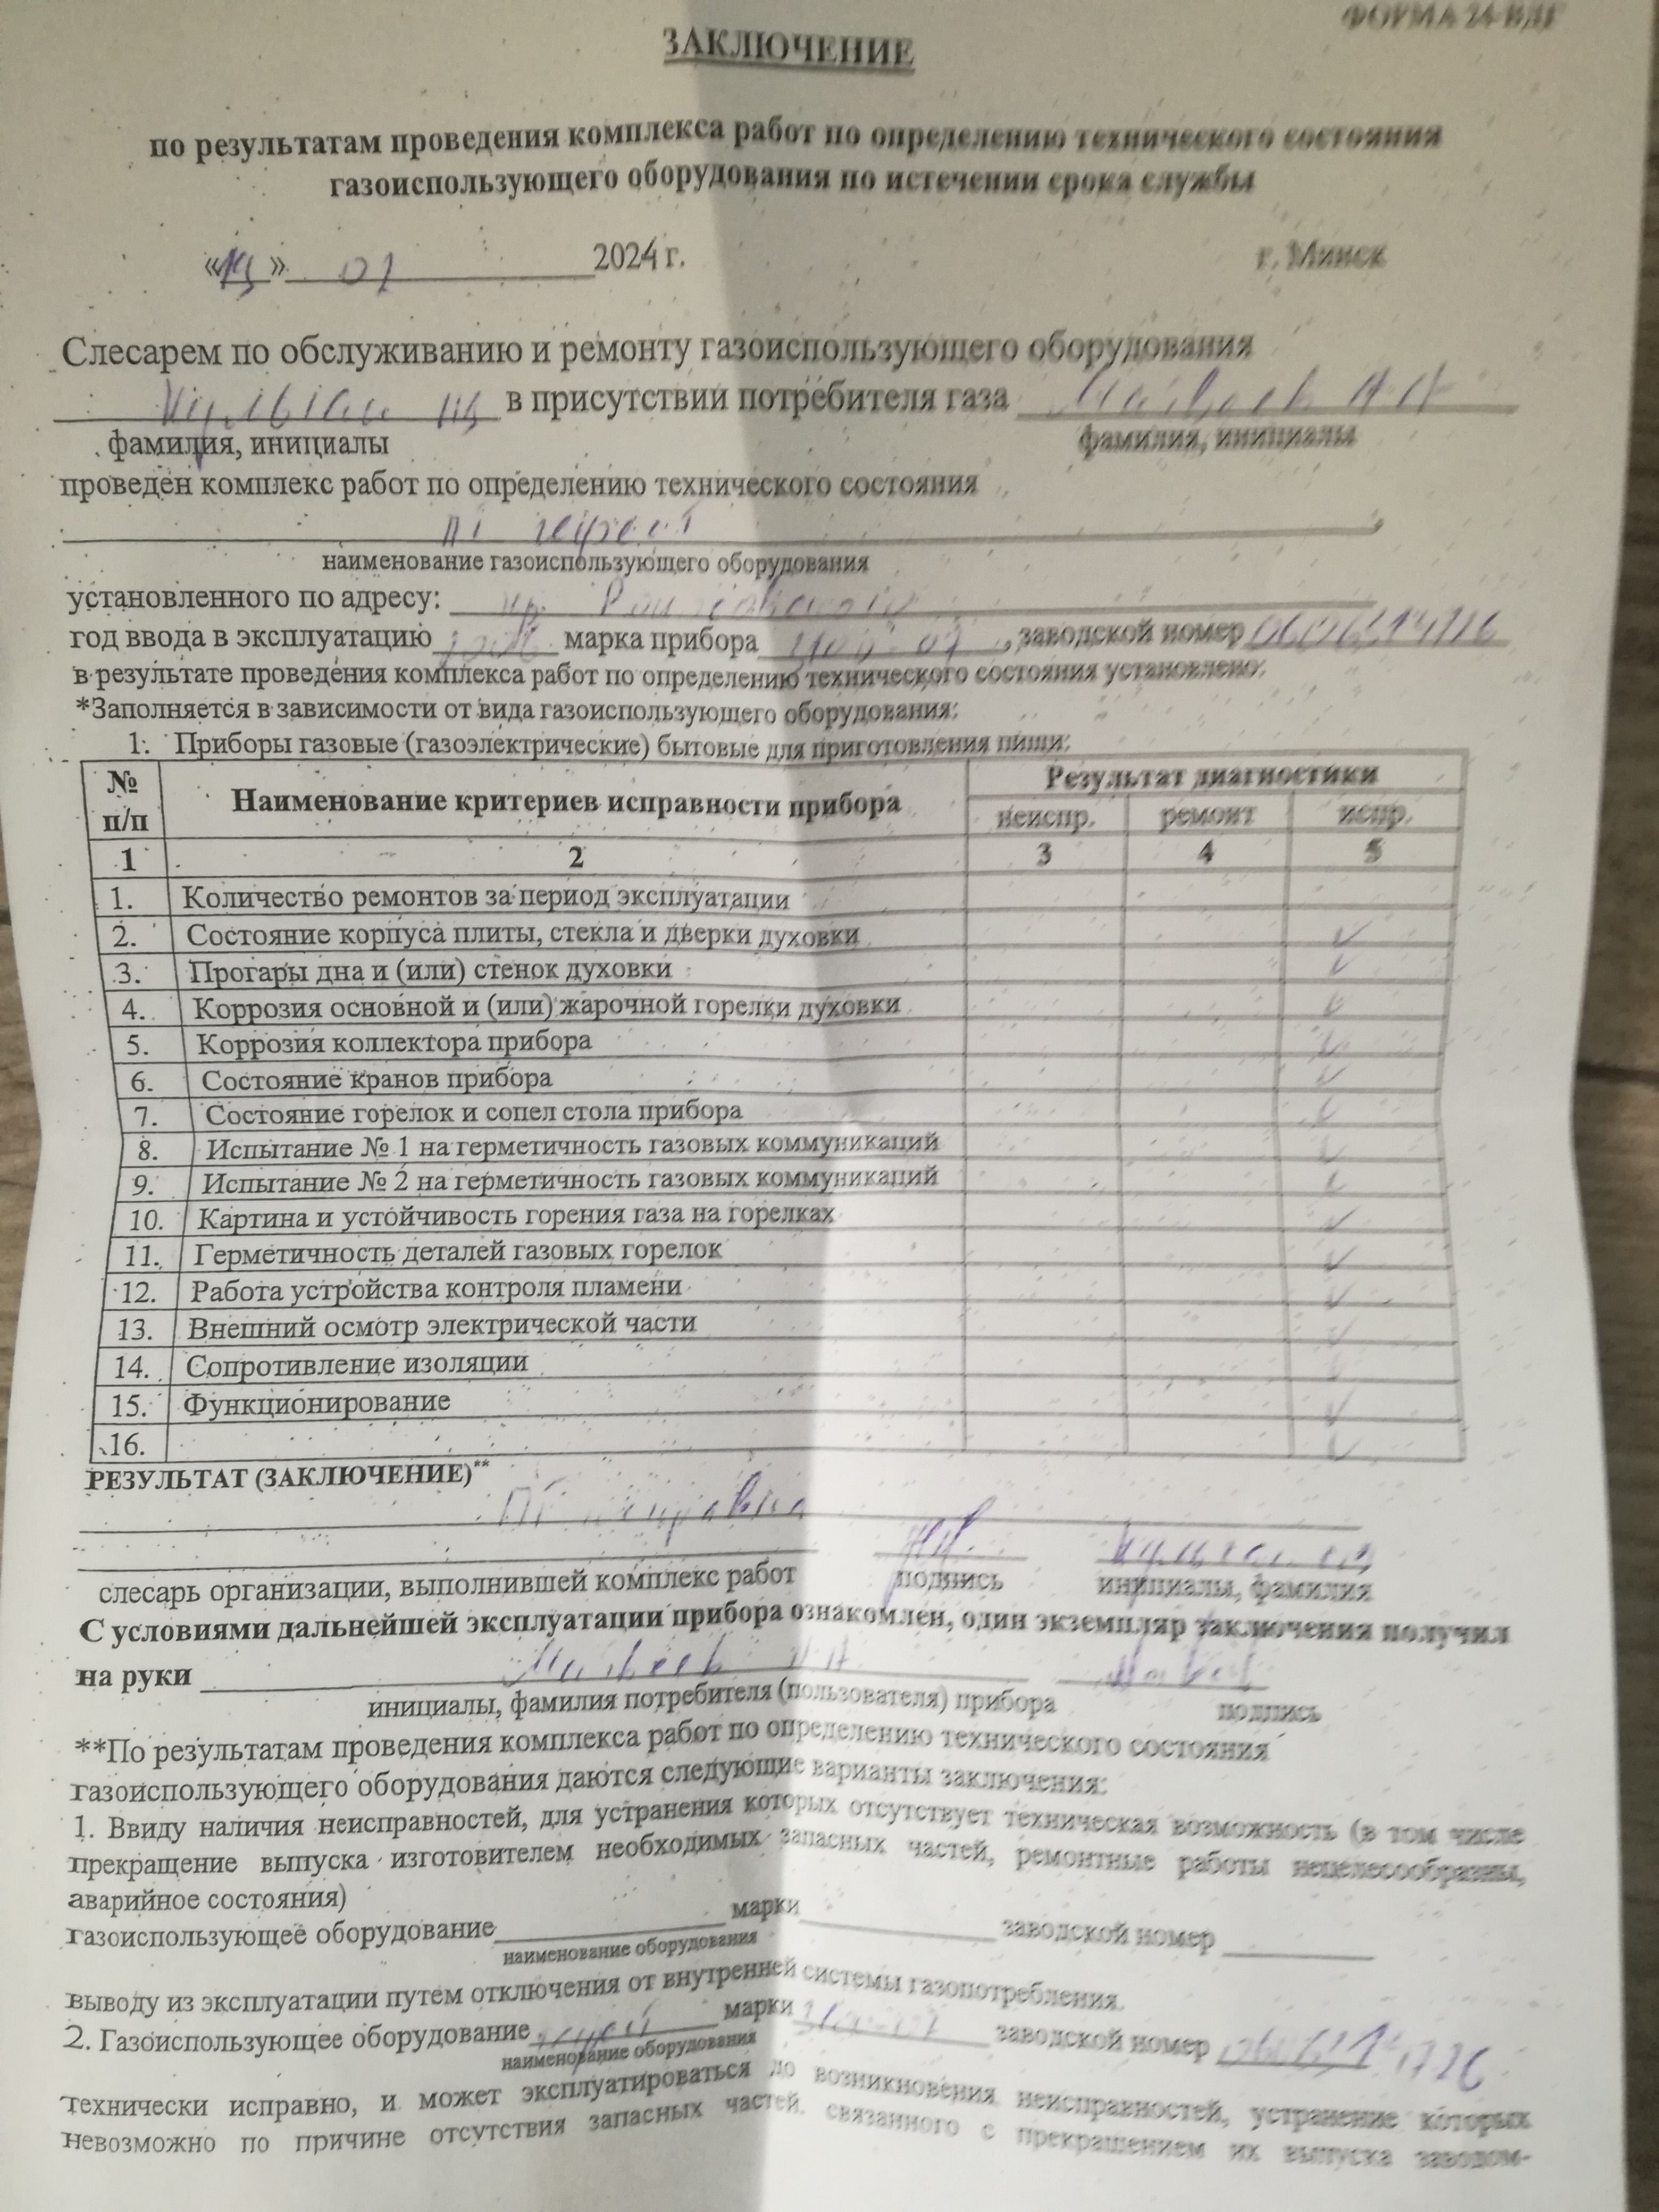 ФОРМА 24-ВДГ
ЗАКЛЮЧЕНИЕ
по результатам проведения комплекса работ по определению технического состояния
газоиспользующего оборудования по истечении срока службы
« » 01 2024 г. г. Минск
Слесарем по обслуживанию и ремонту газоиспользующего оборудования
в присутствии потребителя газа
фамилия, инициалы фамилия, инициалы
проведен комплекс работ по определению технического состояния
наименование газоиспользующего оборудования
установленного по адресу: пр.
год ввода в эксплуатацию марка прибора , заводской номер
в результате проведения комплекса работ по определению технического состояния установлено:
*Заполняется в зависимости от вида газоиспользующего оборудования:
1. Приборы газовые (газоэлектрические) бытовые для приготовления пищи:
№ п/п Наименование критериев исправности прибора Результат диагностики
неиспр. ремонт испр.
1 2 3 4 5
1. Количество ремонтов за период эксплуатации
2. Состояние корпуса плиты, стекла и дверки духовки
3. Прогары дна и (или) стенок духовки
4. Коррозия основной и (или) жарочной горелки духовки
5. Коррозия коллектора прибора
6. Состояние кранов прибора
7. Состояние горелок и сопел стола прибора
8. Испытание № 1 на герметичность газовых коммуникаций
9. Испытание № 2 на герметичность газовых коммуникаций
10. Картина и устойчивость горения газа на горелках
11. Герметичность деталей газовых горелок
12. Работа устройства контроля пламени
13. Внешний осмотр электрической части
14. Сопротивление изоляции
15. Функционирование
16.
РЕЗУЛЬТАТ (ЗАКЛЮЧЕНИЕ)**
ПГ исправна
слесарь организации, выполнившей комплекс работ подпись инициалы, фамилия
С условиями дальнейшей эксплуатации прибора ознакомлен, один экземпляр заключения получил
на руки
инициалы, фамилия потребителя (пользователя) прибора подпись
**По результатам проведения комплекса работ по определению технического состояния
газоиспользующего оборудования даются следующие варианты заключения:
1. Ввиду наличия неисправностей, для устранения которых отсутствует техническая возможность (в том числе
прекращение выпуска изготовителем необходимых запасных частей, ремонтные работы нецелесообразны,
аварийное состояния)
газоиспользующее оборудование марки заводской номер
наименование оборудования
выводу из эксплуатации путем отключения от внутренней системы газопотребления.
2. Газоиспользующее оборудование марки заводской номер
наименование оборудования
технически исправно, и может эксплуатироваться до возникновения неисправностей, устранение которых
невозможно по причине отсутствия запасных частей, связанного с прекращением их выпуска заводом-